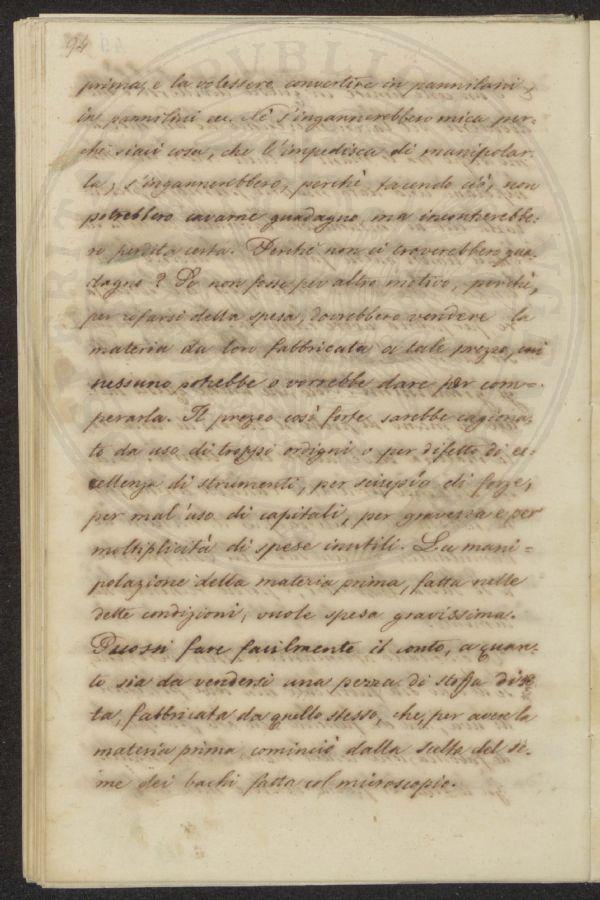 94
prima, e la volessero convertire in pannilani,
in pannilini ec. Nè s'ingannerebbero mica per-
chè siavi cosa, che l'impedisca di manipolar-
la; s'ingannerebbero, perchè, facendo ciò, non
potrebbero cavarne guadagno, ma incontrerebbe-
ro perdita certa. Perchè non ci troverebbero gua-
dagno? Se non fosse per altro motivo, perchè,
per rifarsi della spesa, dovrebbero vendere la
materia da loro fabbricata a tale prezzo, cui
nessuno potrebbe o vorrebbe dare per com-
perarla. Il prezzo così forte sarebbe cagiona-
to da uso di troppi ordigni o per difetto di ec-
cellenza di strumenti, per sciupío di forze,
per mal'uso di capitali, per gravezza e per
moltiplicità di spese inutili. La mani=
polazione della materia prima, fatta nelle
dette condizioni, vuole spesa gravissima.
Puossi fare facilmente il conto, a quan-
to sia da vendersi una pezza di stoffa di se
ta, fabbricata da quello stesso, che, per avere la
materia prima, cominciò dalla scelta del se-
me dei bachi fatta col microscopio.